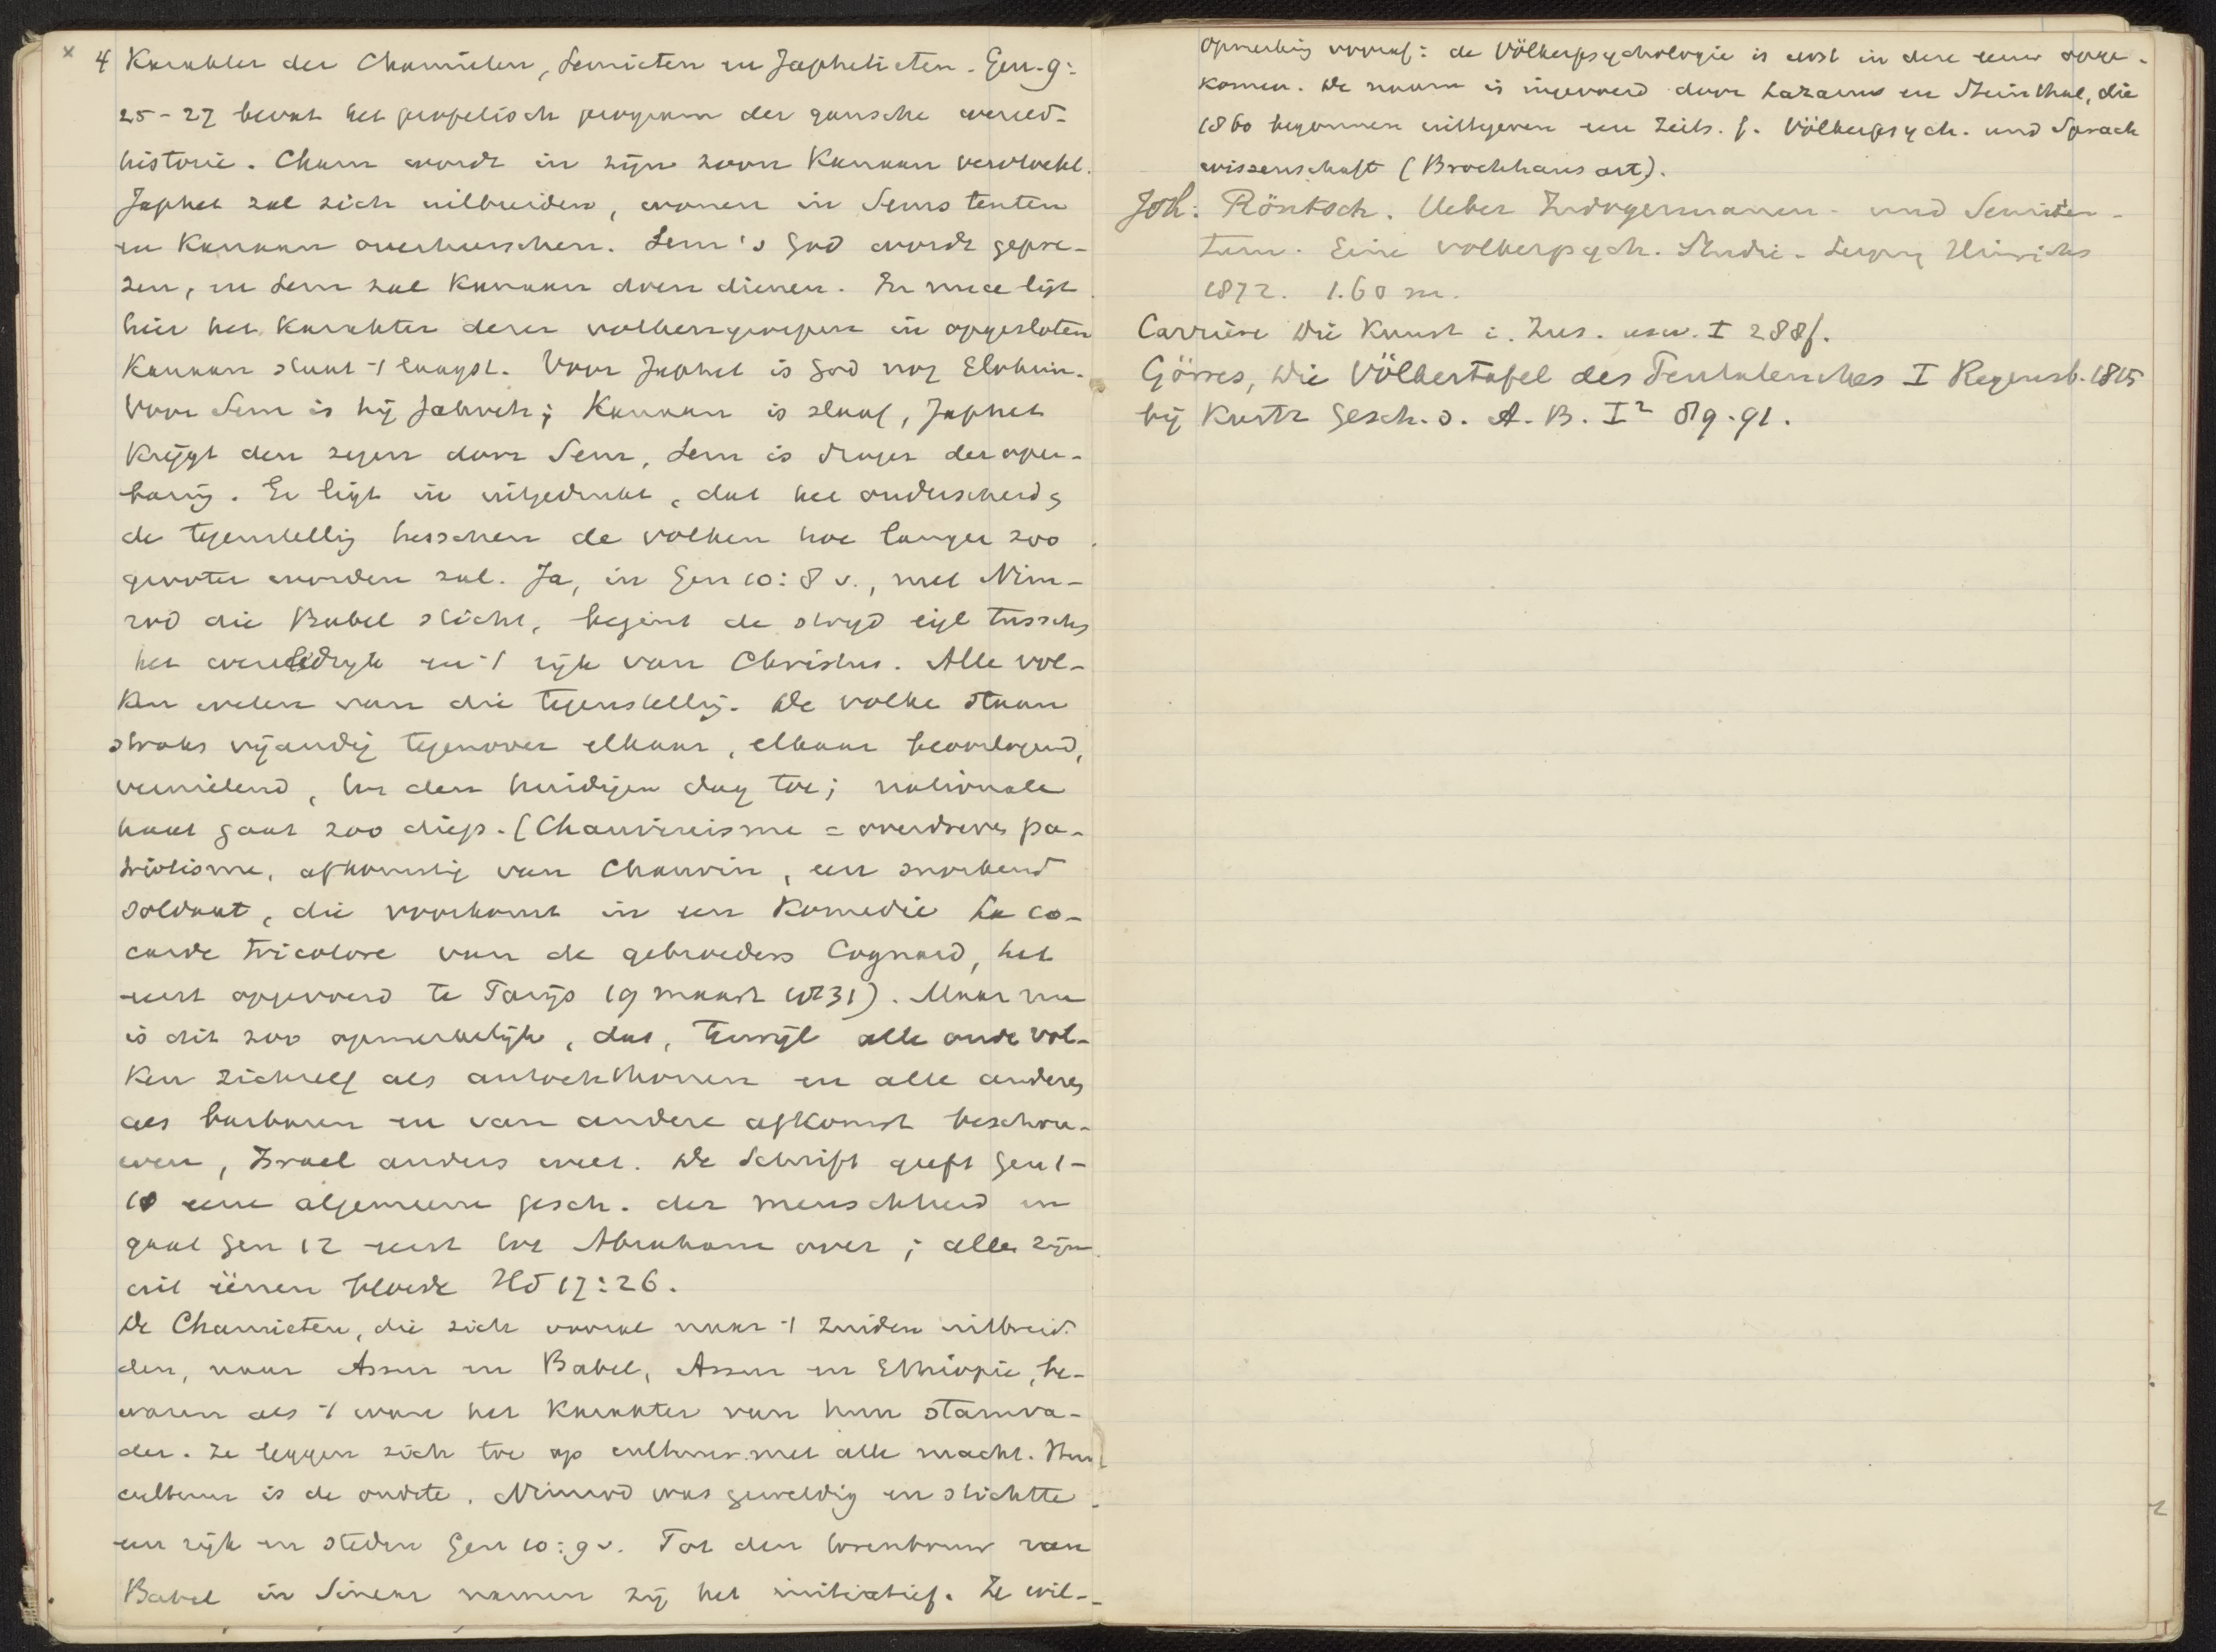 x 4 Karakter der Chamieten, Semieten en Japhetieten. Gen. 9:
25-27 bevat het profetisch program der gansche wereld-
historie. Cham wordt in zijn zoon Kanaan vervloekt.
Japhet zal zich uitbreiden, wonen in Sems tenten
en Kanaan overheerschen. Sem's God wordt gepre-
zen, en Sem zal Kanaan doen dienen. En nu ligt
hier het Karakter dezer volkengroepen in opgesloten
Kanaan staat 't laagst. Voor Japhet is God nog Elohim.
Voor Sem is hij Jahveh; Kanaan is slaaf, Japhet
Krijgt den zegen door Sem, Sem is drager der open-
baring. Er ligt in uitgedrukt, dat het onderscheid,
de tegenstelling tusschen de volken hoe langer zoo
grooter worden zal. Ja, in Gen 10:8 v., met Nim-
rod die Babel sticht, begint de strijd eigl tusschen
het wereldrijk en 't rijk van Christus. Alle vol-
ken weten van die tegenstelling. De volke staan
straks vijandig tegenover elkaar, elkaar beoorlogend,
vernielend, tot den huidigen dag toe; nationale
haat gaat zoo diep. (Chauvinisme = overdreven pa-
triotisme, afkomstig van Chauvin, een snorkend
soldaat, die voorkomt in een Komedie La co-
carde tricolore van de gebroeders Cognard, het
eerst opgevoerd te Parijs 19 maart 1831). Maar nu
is dit zoo opmerkelijk, dat, terwijl alle oude vol-
ken zichzelf als autochthonen en alle anderen
als barbaren en van andere afkomst beschou-
wen, Israel anders weet. De Schrift geeft Gen 1-
10 eene algemeene gesch. der menschheid en
gaat Gen 12 eerst tot Abraham over; alle zijn
uit éénen bloede Hd 17:26.
De Chamieten, die zich vooral naar 't Zuiden uitbreid-
den, naar Assur en Babel, Assur en Ethiopie, be-
waren als 't ware het Karakter van hun stamva-
der. Ze leggen zich toe op cultuur met alle macht. Hun
cultuur is de oudste. Nimrod was geweldig en stichtte
een rijk en steden Gen 10:9 v. Tot den torenbouw van
Babel in Sinear namen zij het initiatief. Ze wil-
Opmerking vooraf: de Völkerpsychologie is eerst in deze eeuw opge-
komen. De naam is ingevoerd door Lazarus en Steinthal, die
1860 begonnen uittegeven een Zeits. f. Völkerpsych. und Sprach
wissenschaft (Brockhaus art).
Joh: Röntsch. Ueber Indogermanen- und Semiten-
tum. Eine volkerpsych. Studie. Leipzig Hinrichs
1872. 1.60 m.
Carriere Die Kunst i. Zus. usw. I 288f.
Görres, Die Völkertafel des Pentateuches I Regensb. 1815
bij Kurtz Gesch. d. A. B. I² 89-91.